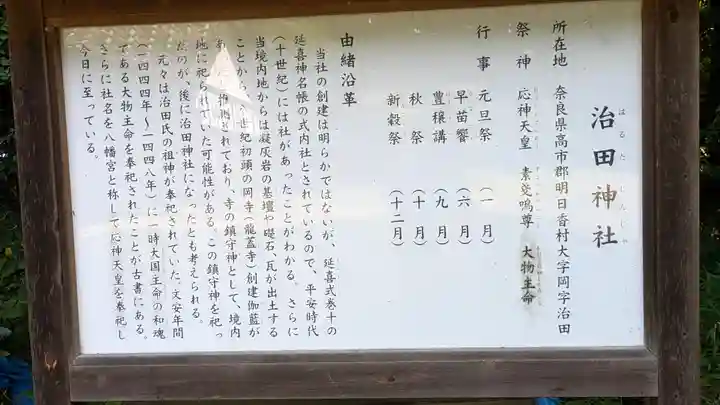 治田神社
はるたじんじゃ
所在地 奈良県高市郡明日香村大字岡字治田
祭神 応神天皇 素戔嗚尊 大物主命
行事 元旦祭 (一月)
早苗饗 (六月)
豊穣講 (九月)
秋祭 (十月)
新穀祭 (十二月)
由緒沿革
当社の創建は明らかではないが、延喜式巻十の
延喜神名帳の式内社とされているので、平安時代
(十世紀)には社があったことがわかる。さらに
当境内地からは凝灰岩の基壇や礎石、瓦が出土する
ことから、世紀初頭の岡寺(龍蓋寺)創建伽藍が
されており、寺の鎮守神として、境内
地に祀られていた可能性がある。この鎮守神を祀っ
たのが、後に治田神社になったとも考えられる。
元々は治田氏の祖神が奉祀されていた。文安年間
(一四四四年~一四四八年)に一時大国主命の和魂
である大物主命を奉祀されたことが古書にある。
さらに社名を八幡宮と称して応神天皇を奉祀し
今日に至っている。